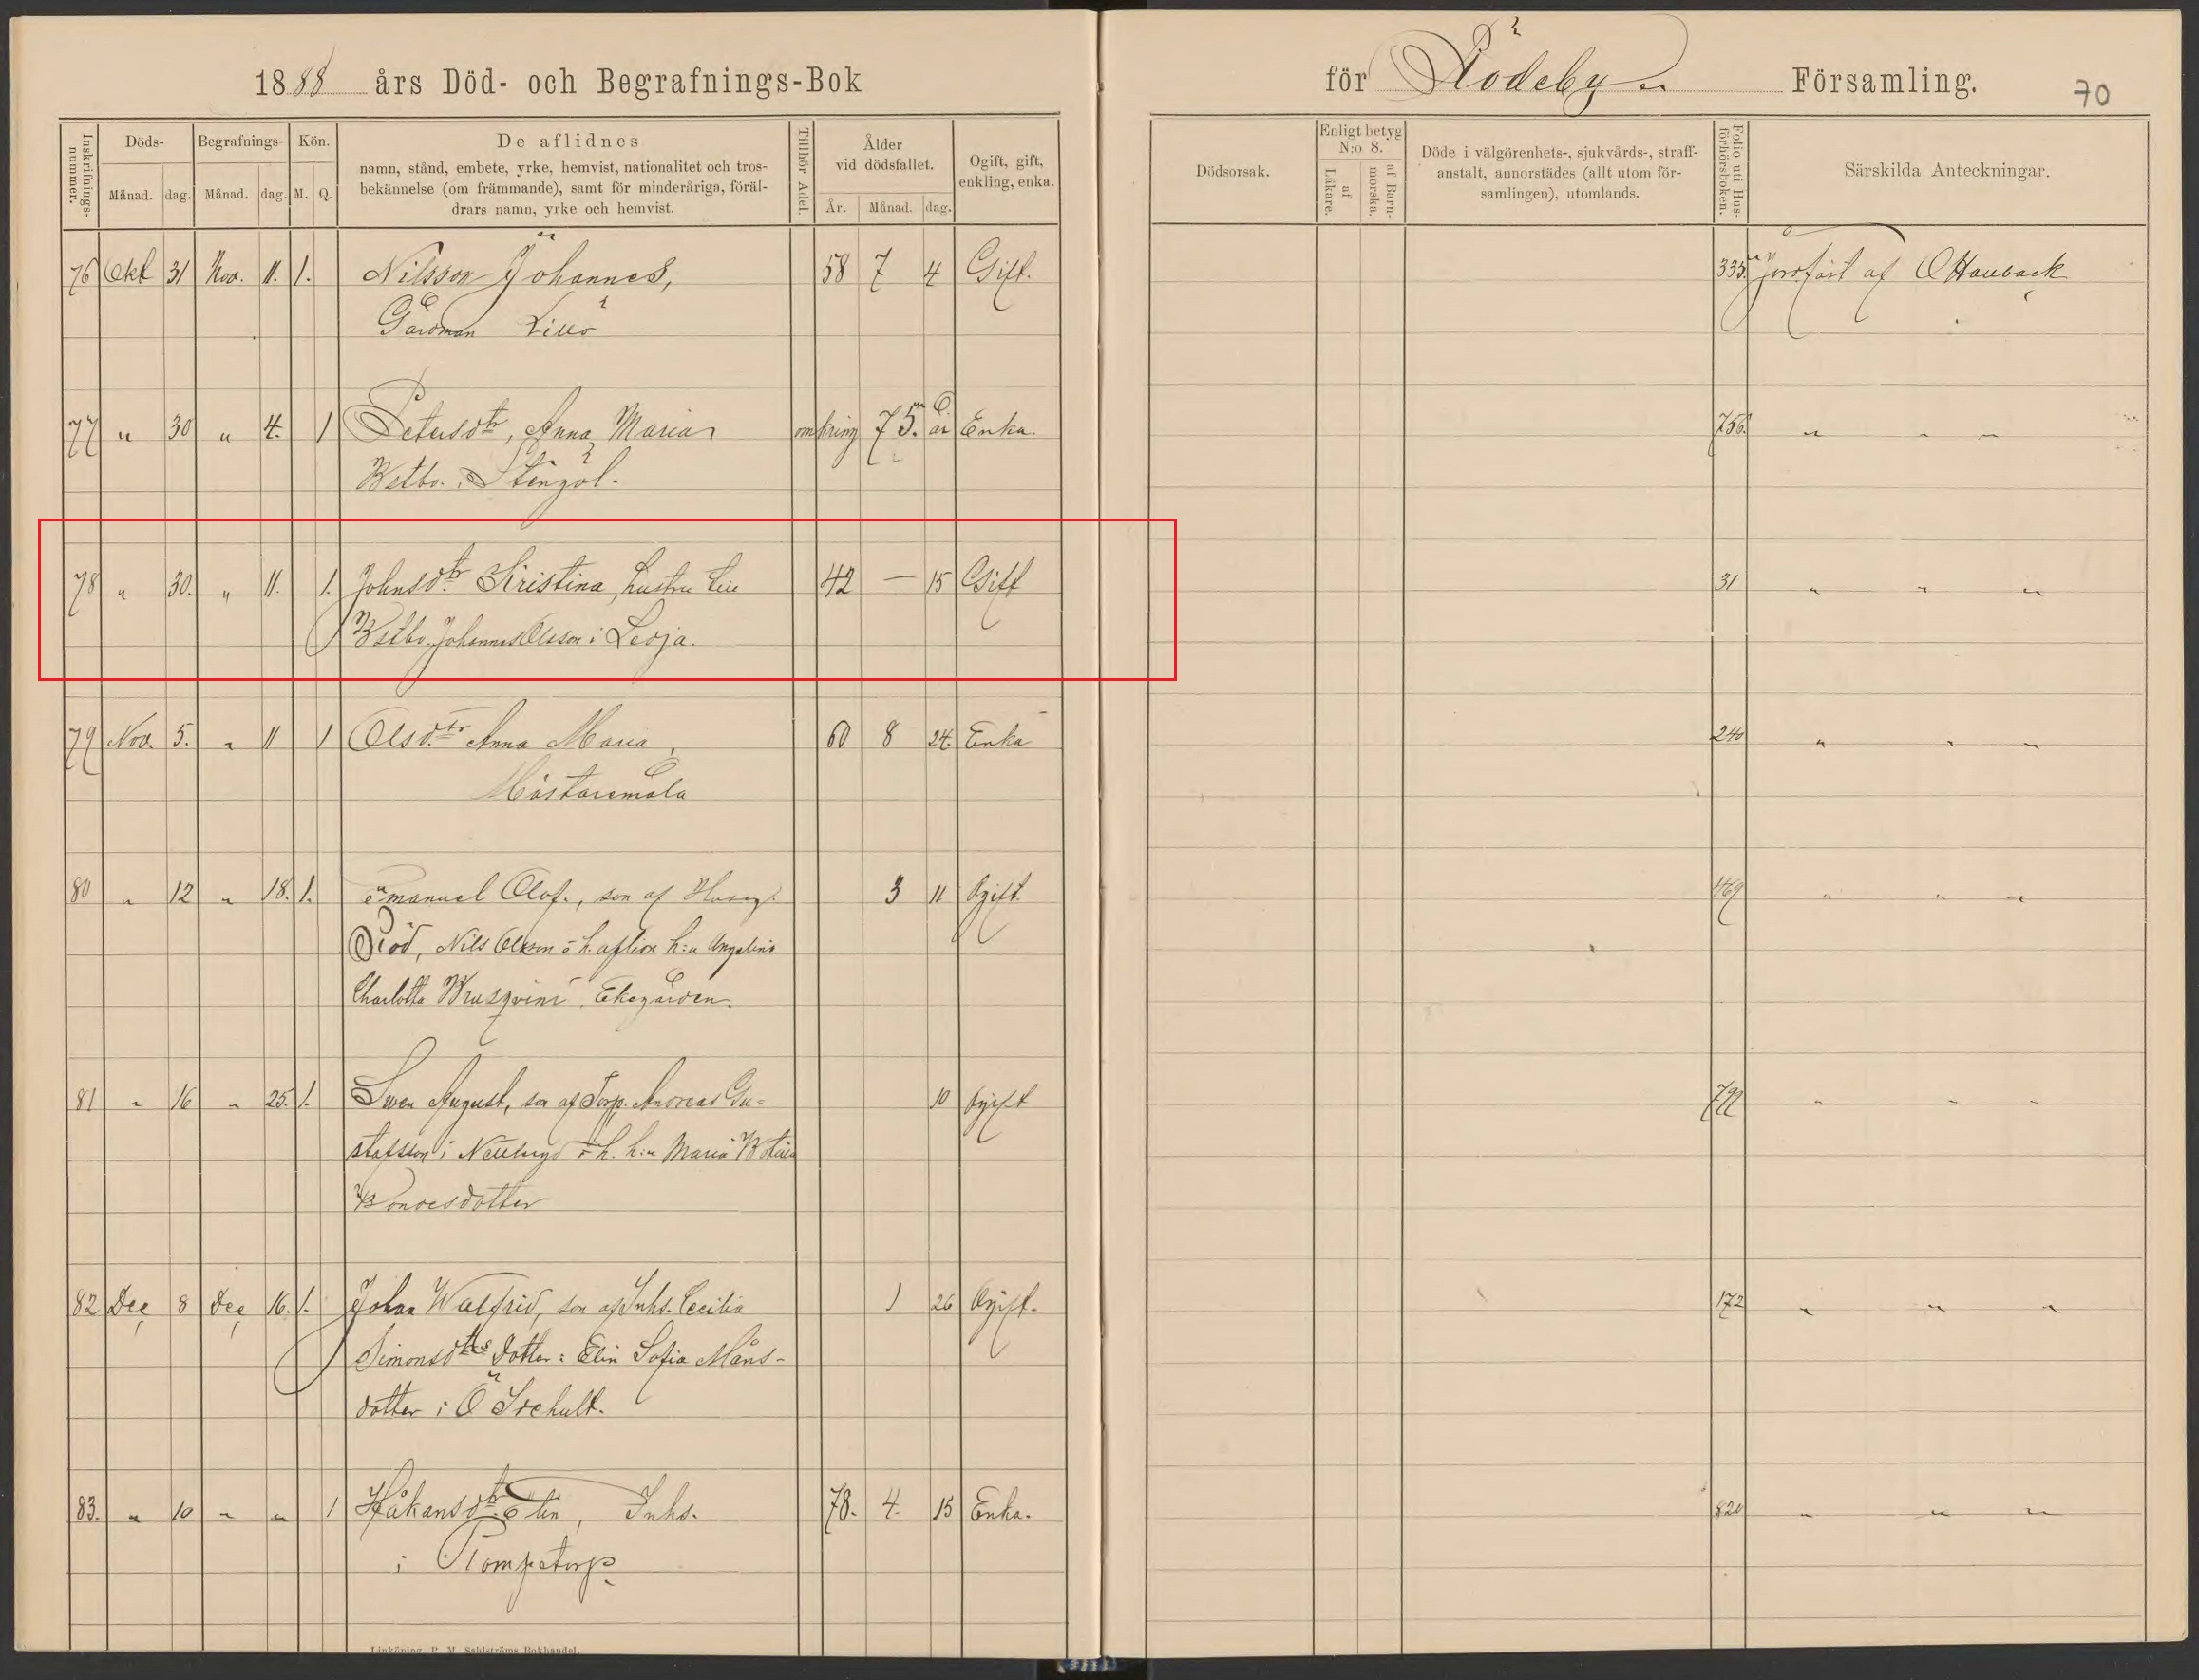 1888 års Död- och Begrafnings-Bok
för Rödeby Församling.
70
Inskrifnings-nummer.
Döds-
Månad. dag.
Begrafnings-
Månad. dag.
Kön.
M. Q.
De aflidnes
namn, stånd, embete, yrke, hemvist, nationalitet och tros-
bekännelse (om främmande), samt för minderåriga, föräl-
drars namn, yrke och hemvist.
Tillhör Adel.
Ålder
vid dödsfallet.
År. Månad. dag.
Ogift, gift,
enkling, enka.
Dödsorsak.
Enligt betyg
N:o 8.
af Läkare.
af Barn-morska.
Döde i välgörenhets-, sjukvårds-, straff-
anstalt, annorstädes (allt utom för-
samlingen), utomlands.
Folio uti Hus-förhörsboken.
Särskilda Anteckningar.
76 Okt 31 Nov. 11. 1. Nilsson Johannes, 58 7 4 Gift. 335. Jordfäst af
Gårdman
77 " 30 " 4. 1 Petersdtr, Anna Maria omkring 75. år Enka. 756. " " "
i Stengöl.
78 " 30. " 11. 1. Johnsdtr Kristina, hustru till 42 — 15 Gift 31 " " "
Johannes Olsson i Ledja.
79 Nov. 5. " 11 1 Olsdtr Anna Maria, 60 8 24. Enka 240 " " "
Mästaremåla
80 " 12 " 18. 1. Emanuel Olof., son af 3 11 Ogift. 469 " " "
Nils Olsson o h. aflidn h:u
Charlotta Ekegården.
81 " 16 " 25. 1. Sven August, son af Torp. Andreas Gu= 10 Ogift 792 " " "
stafsson i o h. h:u Maria
Bondesdotter
82 Dec 8 Dec 16. 1. Johan Walfrid, son af Inhs. Cecilia 1 26 Ogift. 172 " " "
Simonsdtrs dotter: Elin Sofia Måns-
dotter i Ö
83. " 10 " " 1 Håkansdtr Elin, Inhs. 78. 4. 15 Enka. 820 " " "
i Plompetorp
Linköping, P. M. Sahlströms Bokhandel.